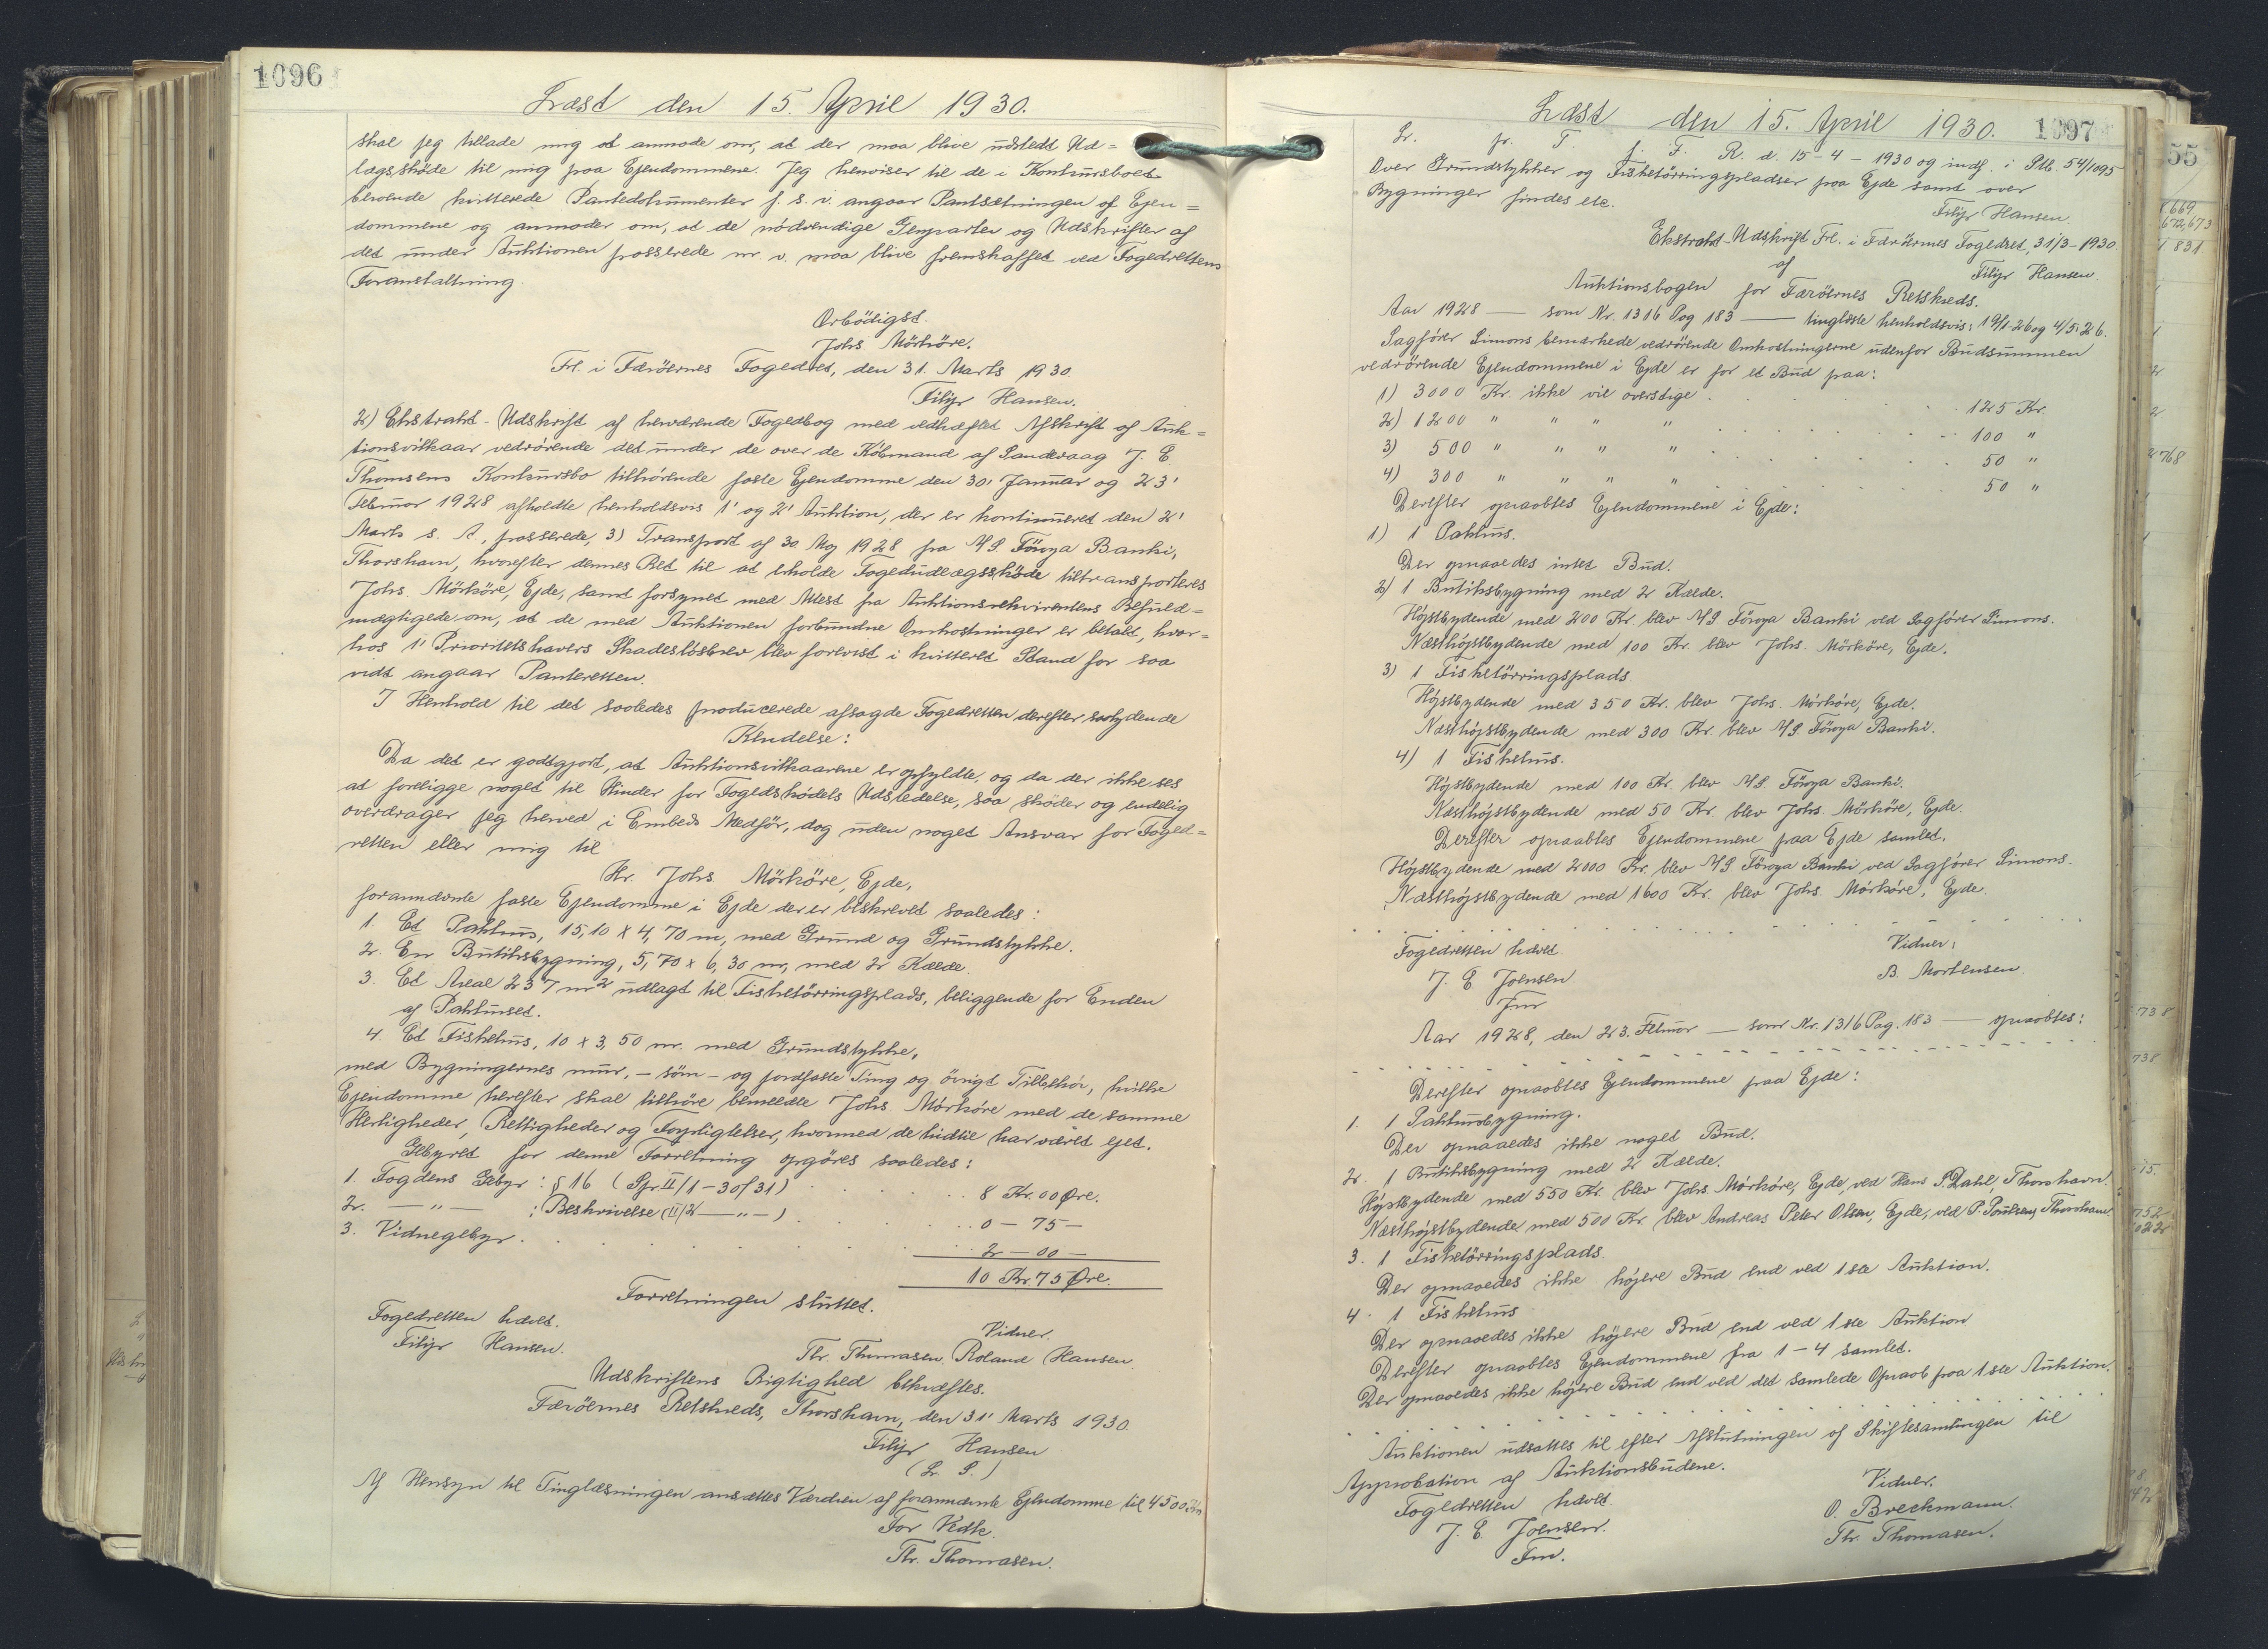 1096
Læst den 15. April 1930.
skal jeg tillade mig at anmode om, at der maa blive udstedt Ud=
lægsskøde til mig paa Ejendommene. Jeg henviser til de i Konkursboet
beroende kvitterede Pantedokumenter f. s. v. angaar Pantsætningen af Ejen=
dommene og anmoder om, at de nödvendige Genparter og Udskrifter af
det under Auktionen passerede m. v. maa blive fremskaffet ved Fogedrettens
Foranstaltning.
Ærbödigst.
Johs. Mörköre.
Frl. i Færöernes Fogedret, den 31. Marts 1930.
Filip Hansen.
2) Ekstrakt-Udskrift af herværende Fogedbog med vedhæftet Afskrift af Auk=
tionsvilkaar vedrörende det under de over de Köbmand af Sandvaag J. E.
Thomsens Konkursbo tilhörende faste Ejendomme den 30' Januar og 23'
Februar 1928 afholdte henholdsvis 1' og 2' Auktion, der er kontinueret den 2'
Marts s. A., passerede, 3) Transport af 30. Maj 1928 fra A/S. Föroya Banki,
Thorshavn, hvorefter dennes Ret til at erholde Fogedudlægsskøde tiltransporteres
Johs. Mörköre, Ejde, samt forsynet med Attest fra Auktionsrekvirentens Befuld=
mægtigede om, at de med Auktionen forbundne Omkostninger er betalt, hvor=
hos 1' Prioritetshavers Skadeslösbrev blev forevist i kvitteret Stand for saa
vidt angaar Panteretten.
I Henhold til det saaledes producerede afsagde Fogedretten derefter saalydende
Kendelse:
Da det er godtgjort, at Auktionsvilkaarene er opfyldte, og da der ikke ses
at foreligge noget til Hinder for Fogedskødets Udstedelse, saa skøder og endelig
overdrager jeg herved i Embeds Medför, dog uden noget Ansvar for Foged=
retten eller mig til
Hr. Johs. Mörköre, Ejde,
forannævnte faste Ejendomme i Ejde der er beskrevet saaledes:
1. Et Pakhus, 15,10 x 4,70 m, med Grund og Grundstykke.
2. En Butiksbygning, 5,70 x 6,30 m, med 2 Kælde.
3. Et Areal 237 m2 udlagt til Fisketörringsplads, beliggende for Enden
af Pakhuset.
4. Et Fiskehus, 10 x 3,50 m. med Grundstykke,
med Bygningernes mur, - söm - og jordfaste Ting og övrigt Tilbehör, hvilke
Ejendomme herefter skal tilhöre bemeldte Johs. Mörköre med de samme
Herligheder, Rettigheder og Forpligtelser, hvormed de hidtil har været ejet.
Gebyret for denne Forretning opgöres saaledes:
1. Fogdens Gebyr: § 16 (Spr II/1-30/31) . . . . 8 Kr. 00 Øre.
2. — " — : Beskrivelse (II/2 — " —) . . . . 0 - 75 -
3. Vidnegebyr. . . . . . 2 - 00 -
10 Kr. 75 Øre.
Forretningen sluttet.
Fogedretten hævet. Vidner.
Filip Hansen. Thr. Thomasen. Roland Hansen.
Udskriftens Rigtighed bekræftes.
Færöernes Retskreds, Thorshavn, den 31' Marts 1930.
Filip Hansen
(L. S.)
Af Hensyn til Tinglæsningen ansættes Værdien af forannævnte Ejendomme til 4500 Kr.
For Vedk.
Thr. Thomasen.
Læst den 15. April 1930. 1097
L. fr. T. f. F. R. d. 15-4-1930 og indf. i Ptb. 54/1095
Over Grundstykker og Fisketörringspladser paa Ejde samt over
Bygninger findes etc.
Filip Hansen.
Ekstrakt-Udskrift Frl. i Færöernes Fogedret, 31/3-1930
af Filip Hansen.
Auktionsbogen for Færöernes Retskreds.
Aar 1928 — som Nr. 1316 Pag 183 — tinglæste henholdsvis: 19/1-26 og 4/5 26.
Sagförer Simons bemærkede vedrörende Omkostningerne udenfor Budsummen
vedrörende Ejendommene i Ejde er for et Bud paa:
1) 3000 Kr. ikke vil overstige . . . . 125 Kr.
2) 1200 " " " " . . . . 100 "
3) 500 " " " " . . . . 50 "
4) 300 " " " " . . . . 50 "
Derefter opraabtes Ejendommene i Ejde:
1) 1 Pakhus.
Der opnaaedes intet Bud.
2) 1 Butiksbygning med 2 Kælde.
Höjstbydende med 200 Kr. blev A/S Föroya Banki ved Sagförer Simons.
Næsthöjstbydende med 100 Kr. blev Johs. Mörköre, Ejde.
3) 1 Fisketörringsplads.
Höjstbydende med 350 Kr. blev Johs. Mörköre, Ejde.
Næsthöjstbydende med 300 Kr. blev A/S. Föroya Banki.
4) 1 Fiskehus.
Höjstbydende med 100 Kr. blev A/S. Föroya Banki.
Næsthöjstbydende med 50 Kr. blev Johs. Mörköre, Ejde.
Derefter opraabtes Ejendommene paa Ejde samlet.
Höjstbydende med 2000 Kr. blev A/S. Föroya Banki ved Sagförer Simons.
Næsthöjstbydende med 1600 Kr. blev Johs. Mörköre, Ejde.
Fogedretten hævet. Vidner:
J. E. Joensen B. Mortensen.
Fm
Aar 1928, den 23. Februar — som Nr. 1316 Pag. 183 — opraabtes:
Derefter opraabtes Ejendommene paa Ejde:
1. 1 Pakhusbygning.
Der opnaaedes ikke noget Bud.
2. 1 Butiksbygning med 2 Kælde.
Höjstbydende med 550 Kr. blev Johs. Mörköre, Ejde, ved Hans P. Dahl, Thorshavn.
Næsthöjstbydende med 500 Kr. blev Andreas Peter Olsen, Ejde, ved P. Poulsen, Thorshavn
3. 1 Fisketörringsplads.
Der opnaaedes ikke höjere Bud end ved 1ste Auktion.
4. 1 Fiskehus
Der opnaaedes ikke höjere Bud end ved 1ste Auktion
Derefter opraabtes Ejendommene fra 1-4 samlet.
Der opnaaedes ikke höjere Bud end ved det samlede Opraab paa 1ste Auktion.
Auktionen udsattes til efter Afslutningen af Skiftesamlingen til
Approbation af Auktionsbudene.
Fogedretten hævet. Vidner.
J. E. Joensen. O. Breckmann.
Fm. Thr. Thomasen.
55
669
672,673
831
768
738
738
15.
752
022